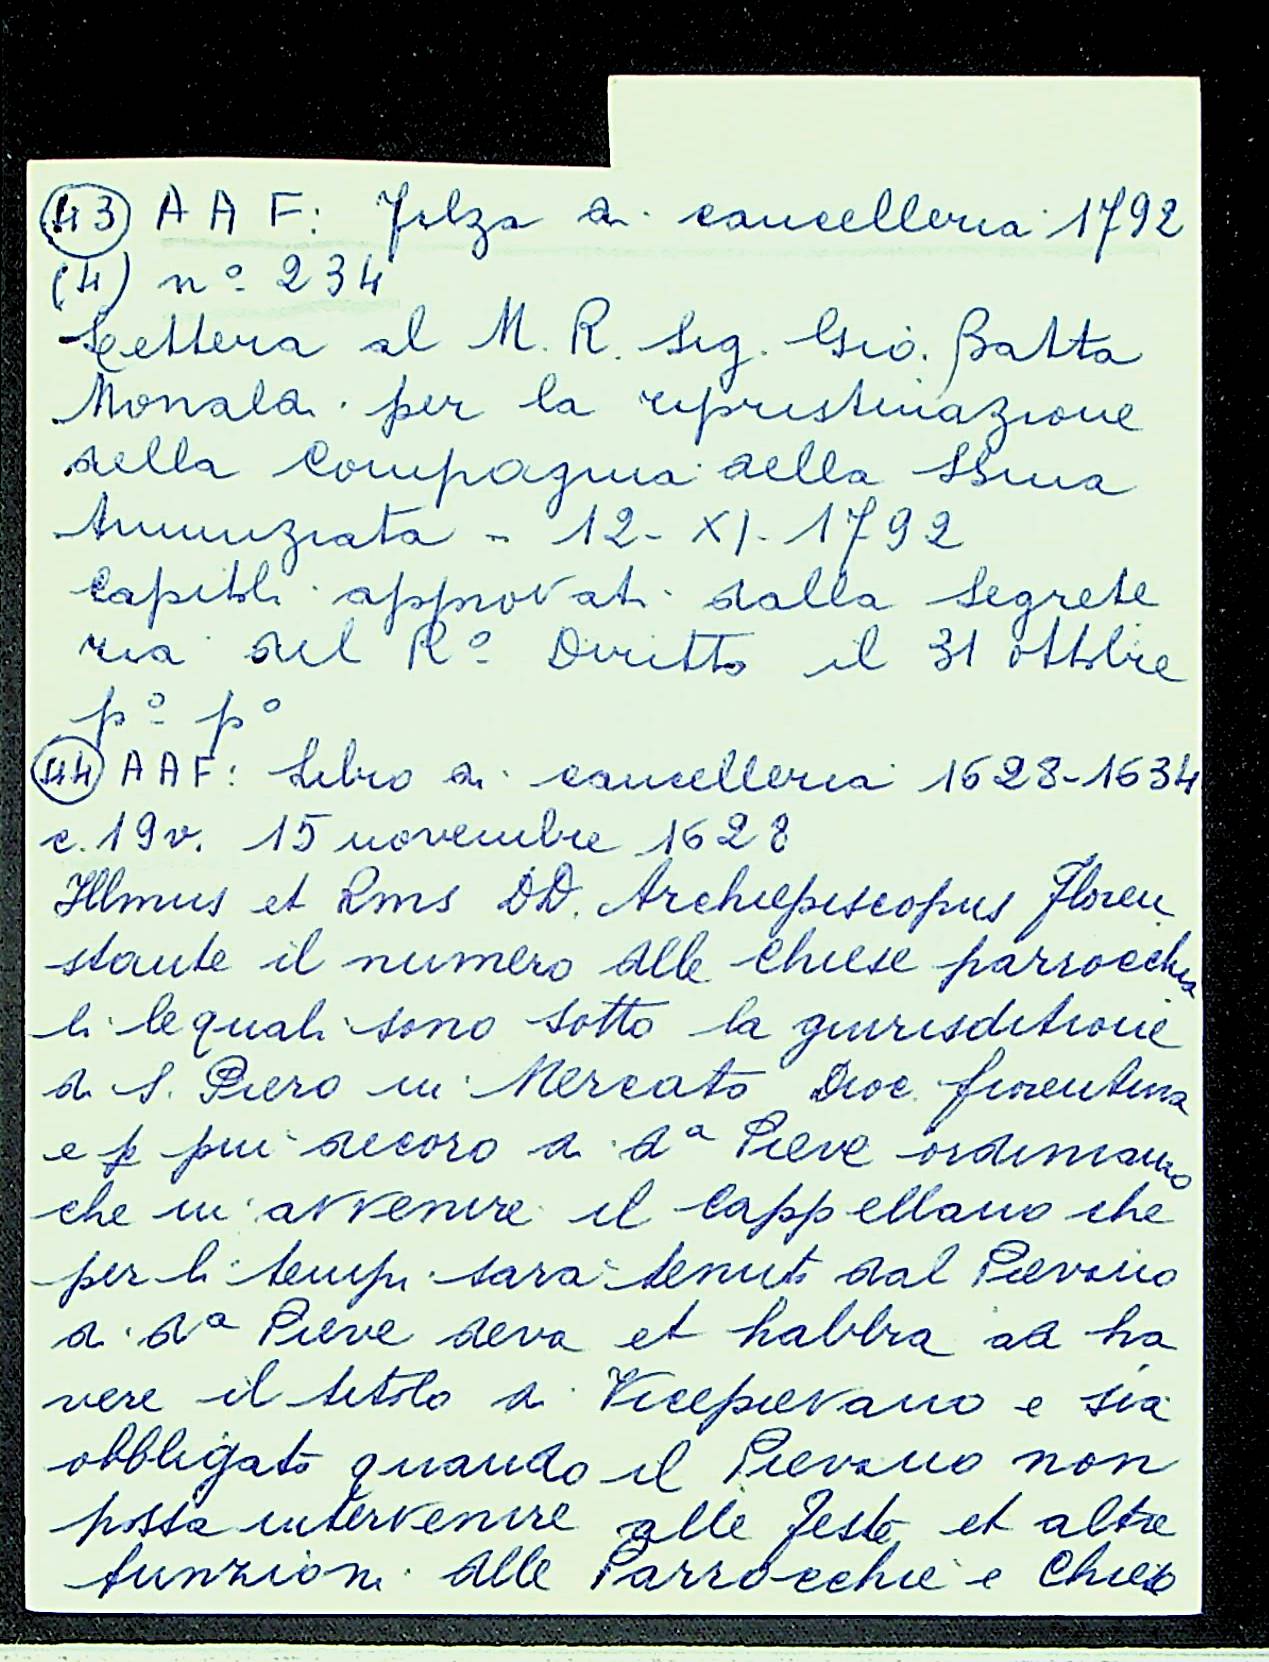 43 AAF: Filza di cancelleria 1792
(4) nº 234
Lettera al M. R. Sig. Giò. Batta
Monaldi per la ripristinazione
della Compagnia della SSma
Annunziata - 12 - XI - 1792
Capitoli approvati dalla Segrete
ria del Rº Diritto il 31 ottobre
pº pº
44 AAF: Libro di cancelleria 1628-1634
c. 19v. 15 novembre 1628
Illmus et Rms DD. Archiepiscopus Floren
stante il numero delle chiese parrocchia
li le quali sono sotto la giurisditione
di S. Piero in Mercato Dioc. fiorentina
e p più decoro di dª Pieve ordiniamo
che in avvenire il Cappellano che
per li tempi sarà tenuto dal Pievano
di dª Pieve deva et habbia ad ha
vere il titolo di Vicepievano e sia
obbligato quando il Pievano non
possa intervenire alle feste et altre
funzioni delle Parrocchie e Chiese